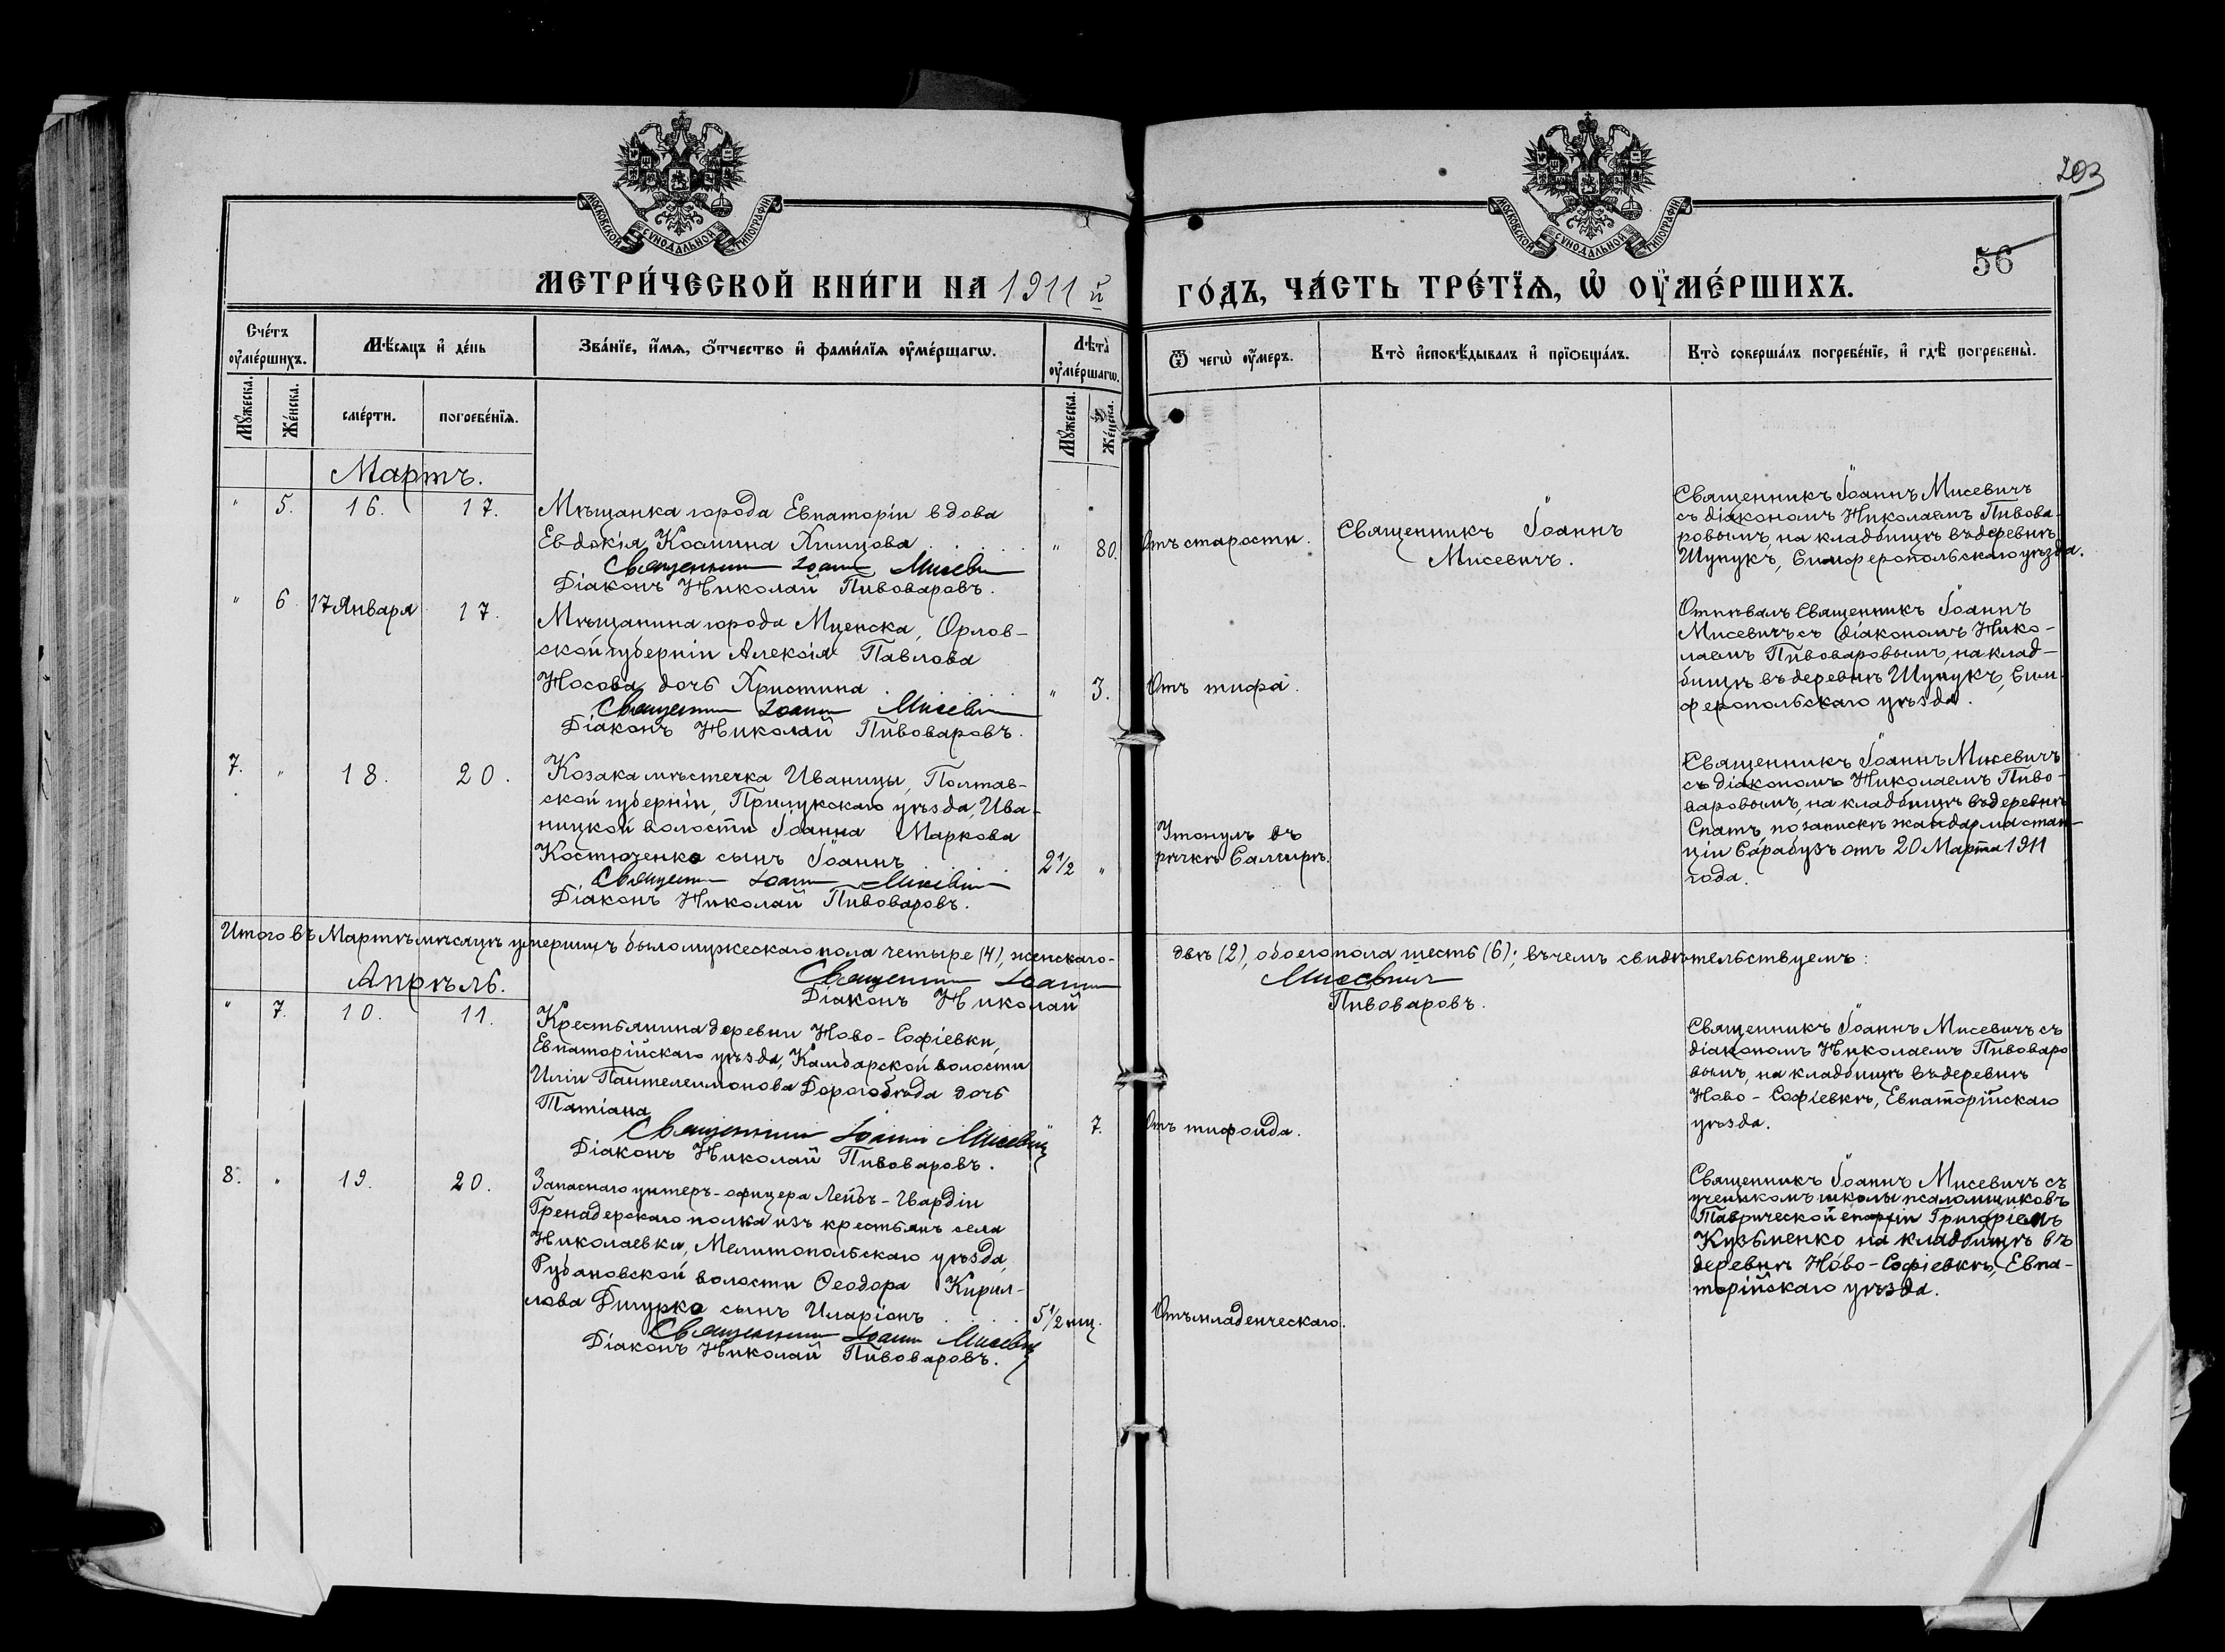 МОСКОВСКОЙ СУНОДАЛЬНОЙ ТИПОГРАФІИ
МОСКОВСКОЙ СУНОДАЛЬНОЙ ТИПОГРАФІИ
203
56
МЕТРИ́ЧЕСКОЙ КНИ́ГИ НА 1911й
ГО́ДЪ, ЧА́СТЬ ТРЕ́ТЇѦ, Ѡ҆ ОУ҆МЕ́РШИХЪ.
Сче́тъ оу҆ме́ршихъ.
Мѣ́сяцъ и҆ де́нь
Зва́нїе, и҆́мѧ, ѻ҆́тчество и҆ фами́лїѧ оу҆ме́ршагѡ.
Лѣта̀ оу҆ме́ршагѡ.
Ѿ чегѡ̀ оу҆́меръ.
Кто̀ и҆сповѣ́дывалъ и҆ прїѡбща́лъ.
Кто̀ соверша́лъ погребе́нїе, и҆ гдѣ̀ погребены̀.
Мꙋ́жеска.
Же́нска.
сме́рти.
погребе́нїѧ.
Мꙋ́жеска.
Же́нска.
Мартъ.
" 5. 16. 17.
Мѣщанка города Евпаторіи вдова
Евдокія Космина Химцова
" 80.
Священникъ Іоаннъ Мисевичъ
Діаконъ Николай Пивоваровъ.
Отъ старости.
Священникъ Іоаннъ
Мисевичъ.
Священникъ Іоаннъ Мисевичъ
съ діакономъ Николаемъ Пивова-
ровымъ, на кладбищѣ въ деревнѣ
Шунукъ, Симферопольскаго уѣзда.
" 6. 17 Января 17.
Мѣщанина города Мценска, Орлов-
ской губерніи Алексія Павлова
Носова дочь Христина
" 3.
Священникъ Іоаннъ Мисевичъ
Діаконъ Николай Пивоваровъ.
Отъ тифа.
Отпѣвалъ Священникъ Іоаннъ
Мисевичъ съ діакономъ Нико-
лаемъ Пивоваровымъ, на клад-
бищѣ въ деревнѣ Шунукъ, Сим-
феропольскаго уѣзда.
7. " 18. 20.
Козака мѣстечка Иваницы, Полтав-
ской губерніи, Прилукскаго уѣзда, Ива-
ницкой волости Іоанна Маркова
Костюзенко сынъ Іоаннъ
2½ "
Священникъ Іоаннъ Мисевичъ
Діаконъ Николай Пивоваровъ.
Утонулъ въ
рѣчкѣ Салгирѣ.
Священникъ Іоаннъ Мисевичъ
съ діакономъ Николаемъ Пиво-
варовымъ, на кладбищѣ въ деревнѣ
Спатъ, по запискѣ жандарма стан-
ціи Сарабузъ отъ 20 Марта 1911
года.
Итого въ Мартѣ мѣсяцѣ умершихъ было мужескаго пола четыре (4), женскаго-
двѣ (2), обоего пола шесть (6); въ чемъ свидѣтельствуемъ:
Священникъ Іоаннъ Мисевичъ
Діаконъ Николай Пивоваровъ.
Апрѣль.
" 7. 10. 11.
Крестьянина деревни Ново-Софіевки,
Евпаторійскаго уѣзда, Камбарской волости
Иліи Пантелеимонова Дорогобѣда дочь
Татіана
" 7.
Священникъ Іоаннъ Мисевичъ
Діаконъ Николай Пивоваровъ.
Отъ тифоида.
Священникъ Іоаннъ Мисевичъ съ
діакономъ Николаемъ Пивоваро
вымъ, на кладбищѣ въ деревнѣ
Ново-Софіевкѣ, Евпаторійскаго
уѣзда.
8. " 19. 20.
Запаснаго унтеръ-офицера Лейбъ-Гвардіи
Гренадерскаго полка изъ крестьянъ села
Николаевки, Мелитопольскаго уѣзда,
Рубановской волости Ѳеодора Кирил-
лова Дигурко сынъ Иларіонъ
5½ мц.
Священникъ Іоаннъ Мисевичъ
Діаконъ Николай Пивоваровъ.
Отъ младенческаго.
Священникъ Іоаннъ Мисевичъ съ
ученикомъ школы псаломщиковъ
Таврической епархіи Григоріемъ
Кузьменко на кладбищѣ въ
деревнѣ Ново-Софіевкѣ, Евпа-
торійскаго уѣзда.